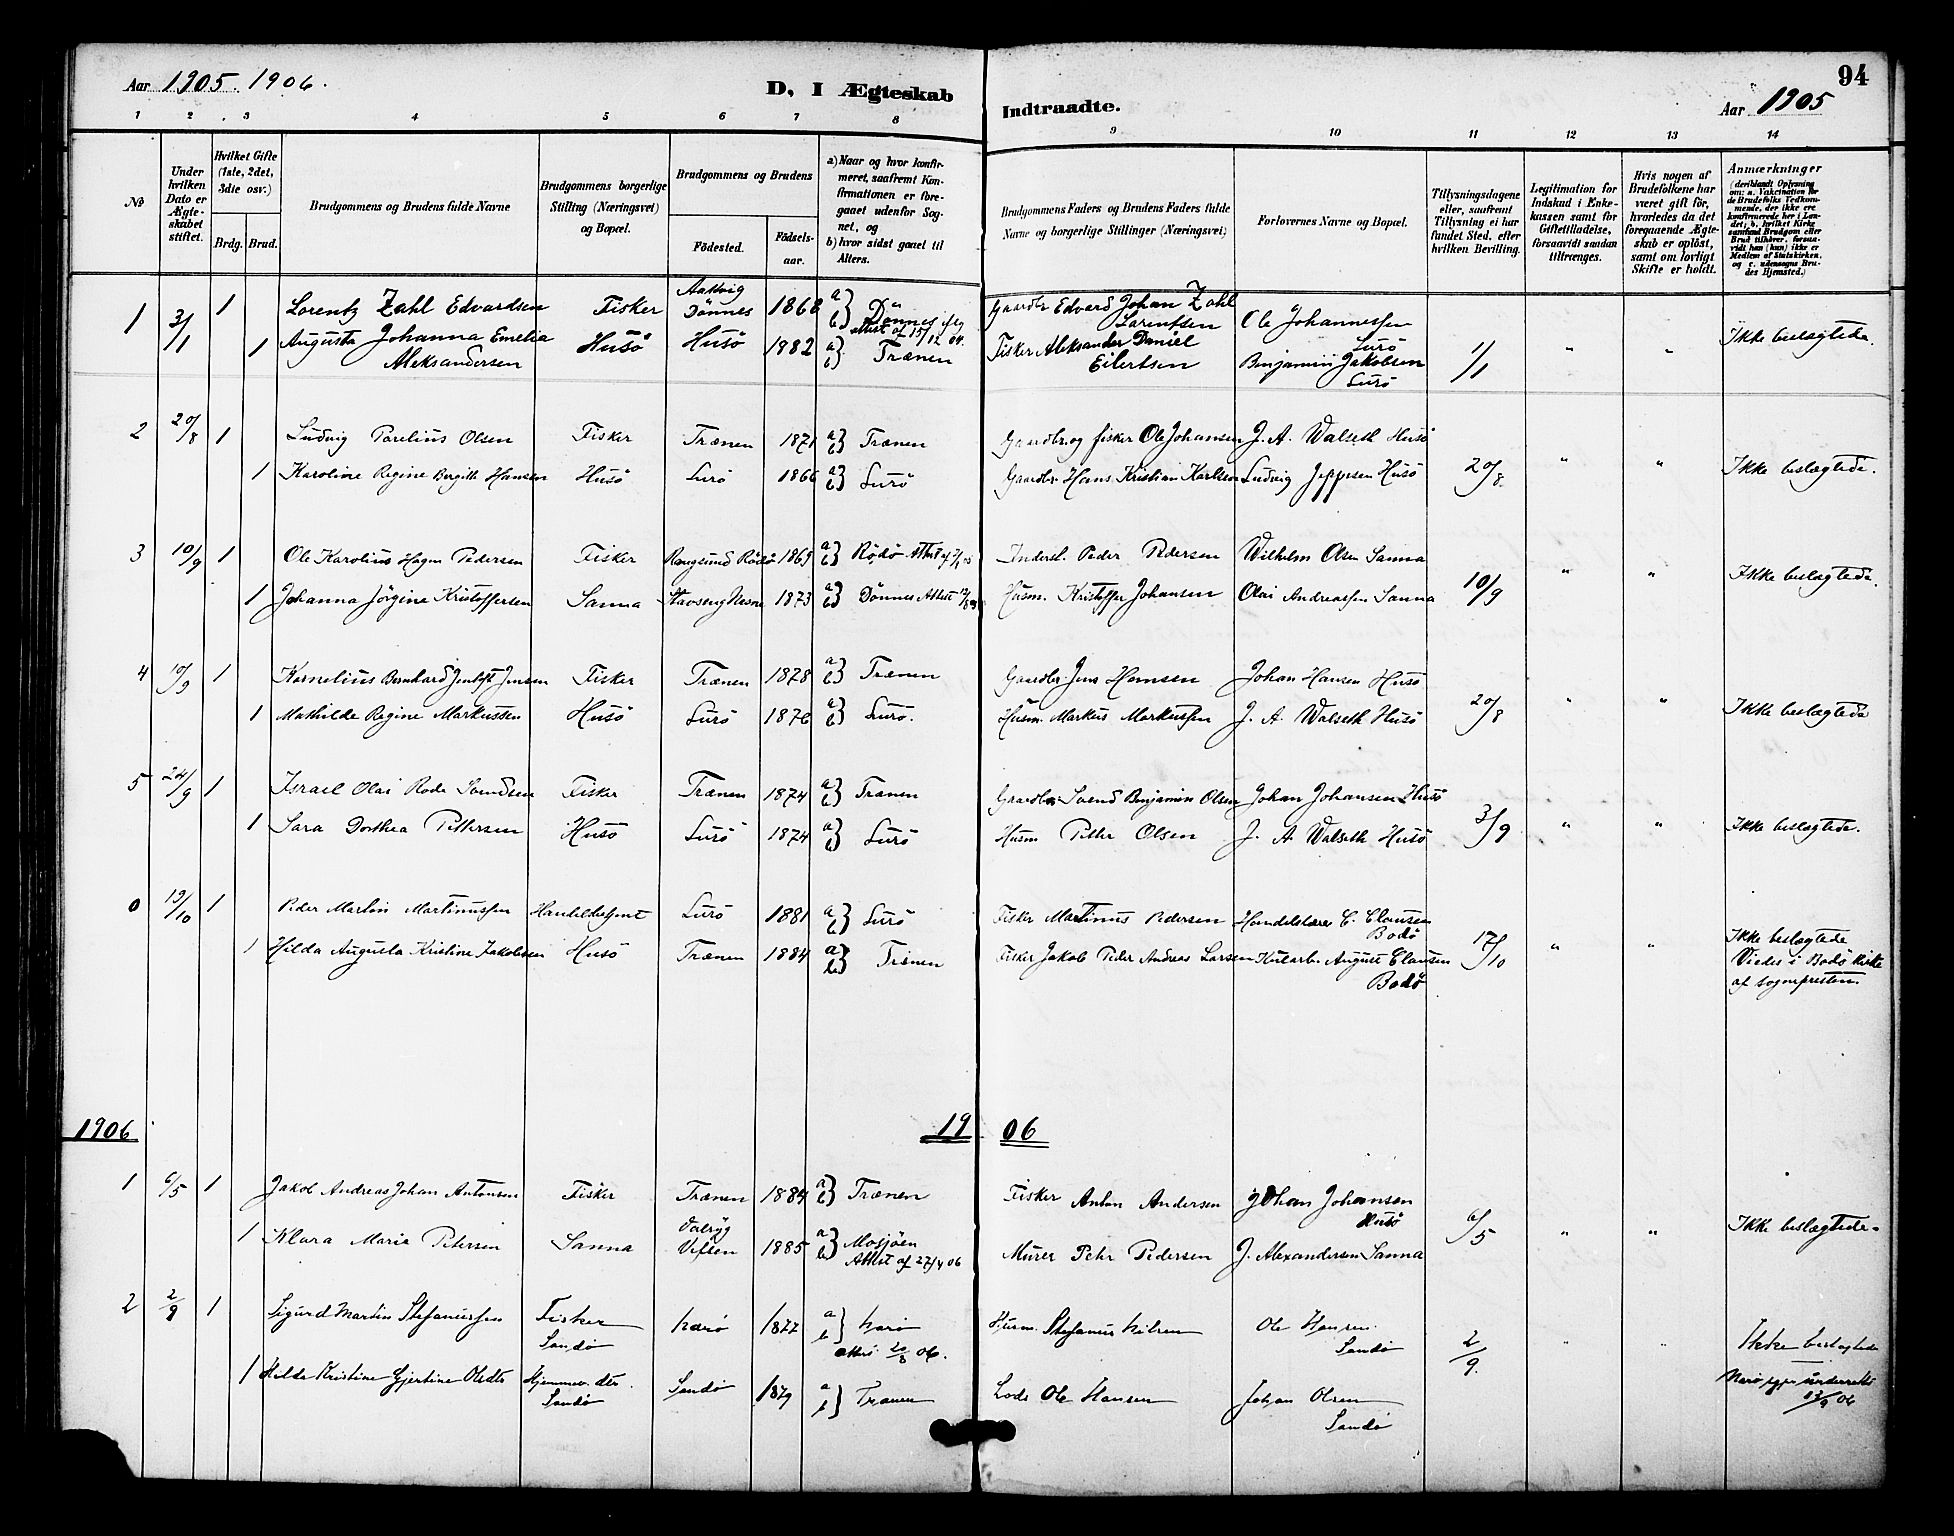 Aar 1905. 1906.
D, I Ægteskab Indtraadte.
94
Aar 1905
1 2 3 4 5 6 7 8 9 10 11 12 13 14
No
Under hvilken Dato er Ægteskabet stiftet.
Hvilket Gifte (1ste, 2det, 3die osv.)
Brdg. Brud.
Brudgommens og Brudens fulde Navne
Brudgommens borgerlige Stilling (Næringsvei) og Bopæl.
Brudgommens og Brudens
Födested.
Födselsaar.
a) Naar og hvor konfirmeret, saafremt Konfirmationen er foregaaet udenfor Sognet, og
b) hvor sidst gaaet til Alters.
Brudgommens Faders og Brudens Faders fulde Navne og borgerlige Stillinger (Næringsvei)
Forlovernes Navne og Bopæl.
Tillysningsdagene eller, saafremt Tillysning ei har fundet Sted, efter hvilken Bevilling.
Legitimation for Indskud i Enkekassen samt for Giftetilladelse, forsaavidt saadan tiltrænges.
Hvis nogen af Brudefolkene har været gift før, hvorledes da det foregaaende Ægteskab er opløst, samt om lovligt Skifte er holdt.
Anmærkninger
(deriblandt Oplysning om: a. Vakcination for de Brudefolks Vedkommende, der ikke ere konfirmerede her i Landet; b. hvilket Kirkesamfund Brudgom eller Brud tilhører, forsaavidt han (hun) ikke er Medlem af Statskirken, og c. udensogns Brudes Hjemsted.)
1 3/1 1 Lorentz Zahl Edvardsen Fisker Dönnes 1868 a) b) Dönnes attest af 15/12 04. Gaardbr. Edvard Johan Zahl Larentsen Ole Johannessen Lurö
1 Augusta Johanna Emelia Aleksandersen Husö Husö 1882 a) b) Trænen Fisker Aleksander Daniel Eilertsen Benjamin Jakobsen Lurö 1/1 " " Ikke beslagtede.
2 20/8 1 Ludvig Parelius Olsen Fisker Trænen 1871 a) b) Trænen Gaardbr. og fisker Ole Johansen J. A. Walseth Husö
1 Karoline Regine Bergith Hansen Husö Lurö 1866 a) b) Lurö Gaardbr. Hans Kristian Karlsen Ludvig Jeppesen Husö 20/8 " " Ikke beslægtede.
3 10/9 1 Ole Karolius Hagen Pedersen Fisker Rangsund Rödö 1869 a) b) Rødø Inderst. Peder Pedersen Wilhelm Olsen Sanna
1 Johanna Jörgine Kristoffersen Sanna Stavseng Nesne 1873 a) b) Dönnes Attest Husm. Kristoffer Johansen Olai Andreassen Sanna 10/9 " " Ikke beslægtede.
4 10/9 1 Kornelius Bernhard Jentoft Jensen Fisker Trænen 1878 a) b) Trænen Gaardbr. Jens Hansen Johan Hansen Husö
1 Mathilde Regine Markussen Husö Lurö 1876 a) b) Lurö. Husm. Markus Markussen J. A. Walseth Husö 20/8 " " Ikke beslægtede
5 24/9 1 Israel Olai Rode Svendsen Fisker Trænen 1874 a) b) Trænen Gaardbr. Svend Benjamin Olsen Johan Johansen Husö
1 Sara Dorthea Pettersen Husö Lurö 1874 a) b) Lurö Husm Petter Olsen J. A. Walseth Husö 3/9 " " Ikke beslægtede.
19/10 1 Peder Martin Martinussen Handelsbetjent Lurö 1881 a) b) Lurö Fisker Martinus Pedersen C. Clausen Bodö
1 Hilda Augusta Kristine Jakobsen Husö Trænen 1884 a) b) Trænen Fisker Jakob Peder Andreas Larsen August Clausen Bodö 17/10 " " Ikke beslægtede Viedes i Bodö kirke af sognepresten.
1906 1906
1 6/5 1 Jakob Andreas Johan Antonsen Fisker Trænen 1884 a) b) Trænen Fisker Anton Andersen Johan Johansen Husö
1 Klara Marie Petersen Sanna Vefsen 1885 a) b) Mosjöen Attest af 27/4 06 Murer Petter Pedersen J. Alexandersen Sanna 6/5 " " Ikke beslægtede.
2 2/9 1 Sigurd Martin Stefanussen Fisker Sandø 1877 a b attest 06. Husm. Stefanus Nilsen Ole Hansen Sandø
1 Hilda Kristine Gjertine Olsdtr Hjemmev. dtr. Sandø Sandø 1879 a b Trænen Lods Ole Hansen Johan Olsen Sandø 2/9. " " Ikke beslægtede
underrettet 13/9 06